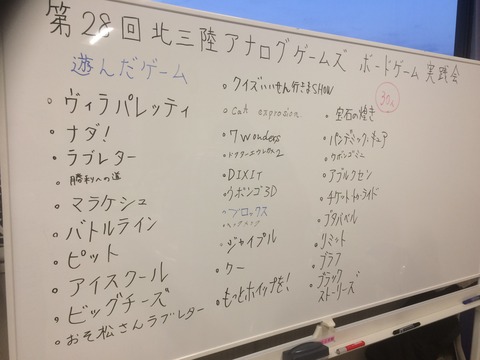 第28回 北三陸アナログゲームズ ボードゲーム 実践会
遊んだゲーム
30人
・ヴィラパレッティ
・ナダ!
・ラブレター
・勝利への道
・マラケシュ
・バトルライン
・ピット
・アイスクール
・ビッグチーズ
・おそ松さんラブレター
・クイズいいせん行きまSHOW
・Cat exprosion
・7 Wonders
・DIXIT
・ウボンゴ3D
・ブロックス
・ジャイプル
・クー
・もっとホイップを!
・宝石の煌き
・パンデミック・キュア
・ウボンゴミニ
・アブルクセン
・チケットトゥ・ライド
・ブタバベル
・リミット
・ブラフ
・ブラック
ストーリーズ